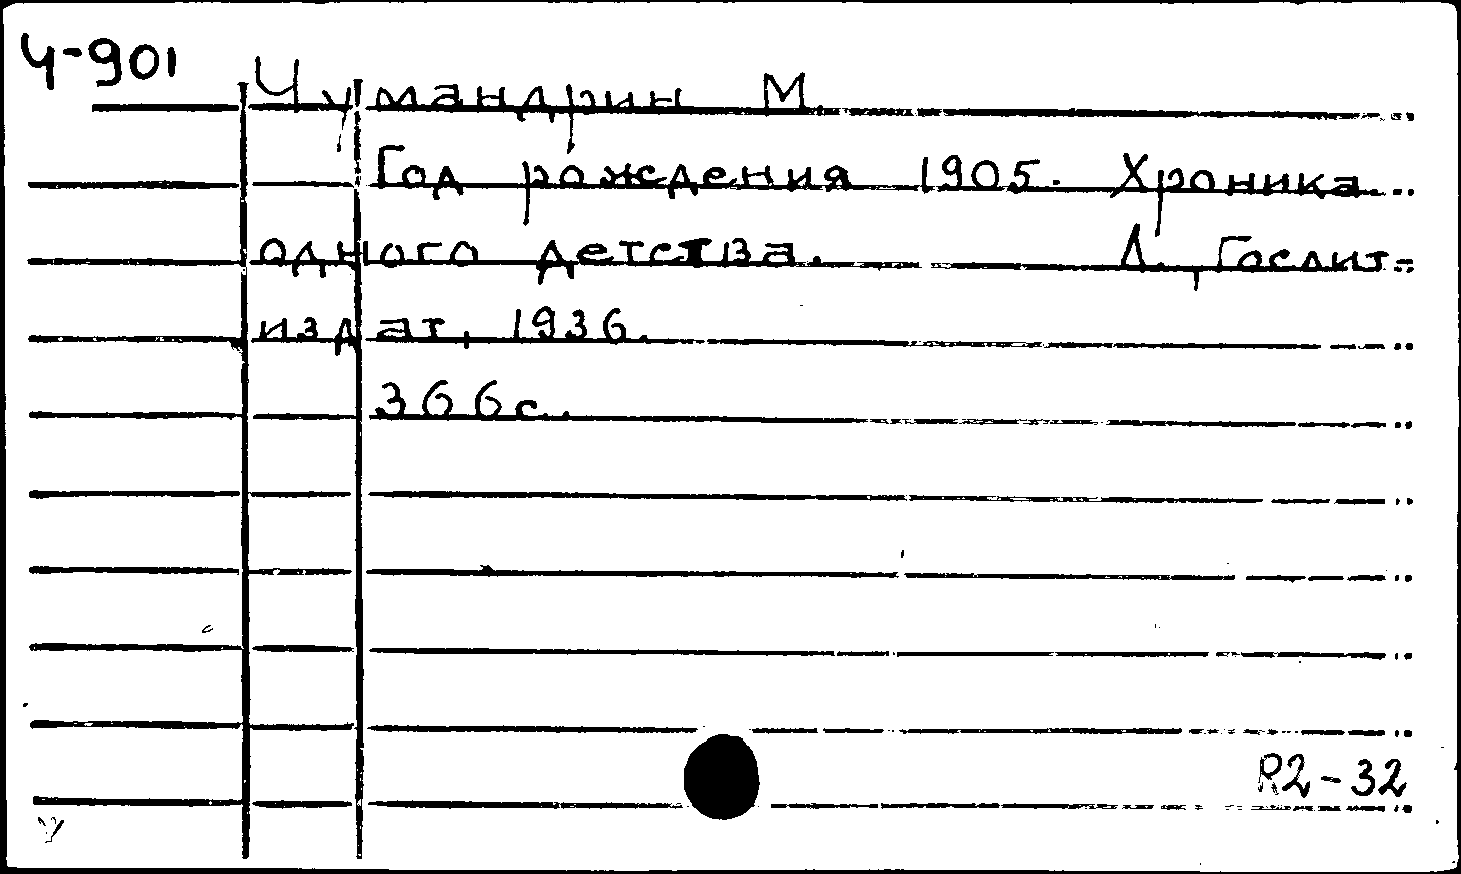 Ч-901
Чумандрин М.
Год рождения 1905. Хроника
одного детства. Л., Гослит-
издат, 1936.
366с.
R2-32